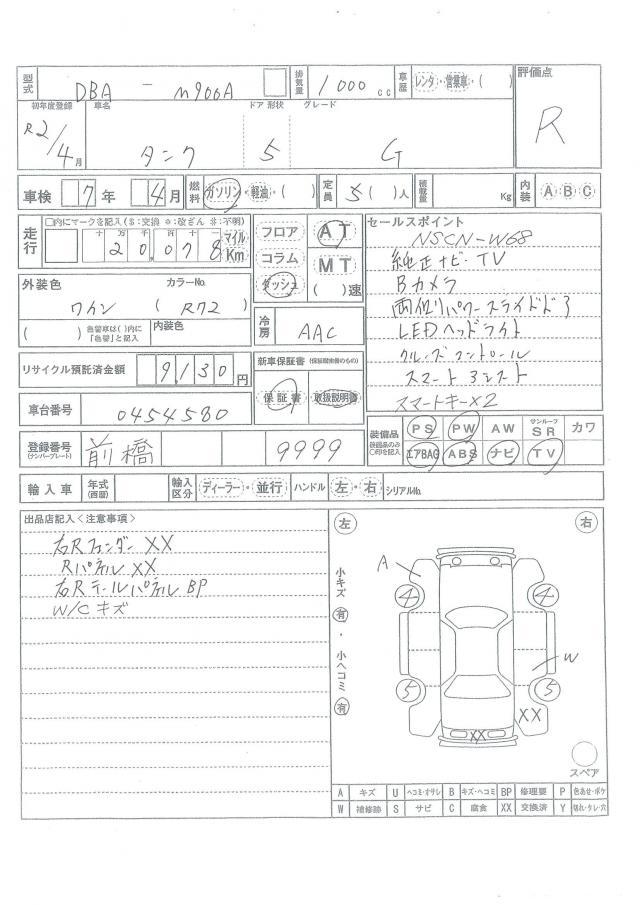 型式 DBA - M900A 排気量 1000 cc 車歴 レンタ・営業車・( ) 評価点
R
初年度登録 車名 ドア 形状 グレード
R2/4月 タンク 5 G
車検 7年 4月 燃料 ガソリン・軽油・( ) 定員 5( )人 積載量 Kg 内装 A B C
走行 □内にマークを記入($:交換 *:改ざん #:不明)
十 万 千 百 十 一 マイル
20,078 Km
フロア AT
コラム MT
ダッシュ ( )速
セールスポイント
NSCN-W68
純正ナビ・TV
Bカメラ
両側パワースライドドア
LEDヘッドライト
クルーズコントロール
スマートアシスト
スマートキー×2
外装色 カラーNo.
ワイン (R72)
( ) 色替車は( )内に「色替」と記入 内装色
冷房 AAC
リサイクル預託済金額 9130円
新車保証書 (保証期間車輌のもの)
保証書 取扱説明書
車台番号 0454580
登録番号 (ナンバープレート) 前橋 9999
装備品 装備品のみ○印を記入 PS PW AW サンルーフ SR カワ
エアBAG ABS ナビ TV
輸入車 年式(西暦) 輸入区分 ディーラー・並行 ハンドル 左・右 シリアルNo.
出品店記入〈注意事項〉
右Rフェンダー XX
Rパネル XX
右Rテールパネル BP
W/C キズ
左 右
小キズ 有 ・ 小ヘコミ 有
A
4 4
W
5 5
XX
XX
スペア
A キズ U ヘコミ・オサレ B キズ・ヘコミ BP 修理要 P 色あせ・ボケ
W 補修跡 S サビ C 腐食 XX 交換済 Y 切れ・タレ・穴